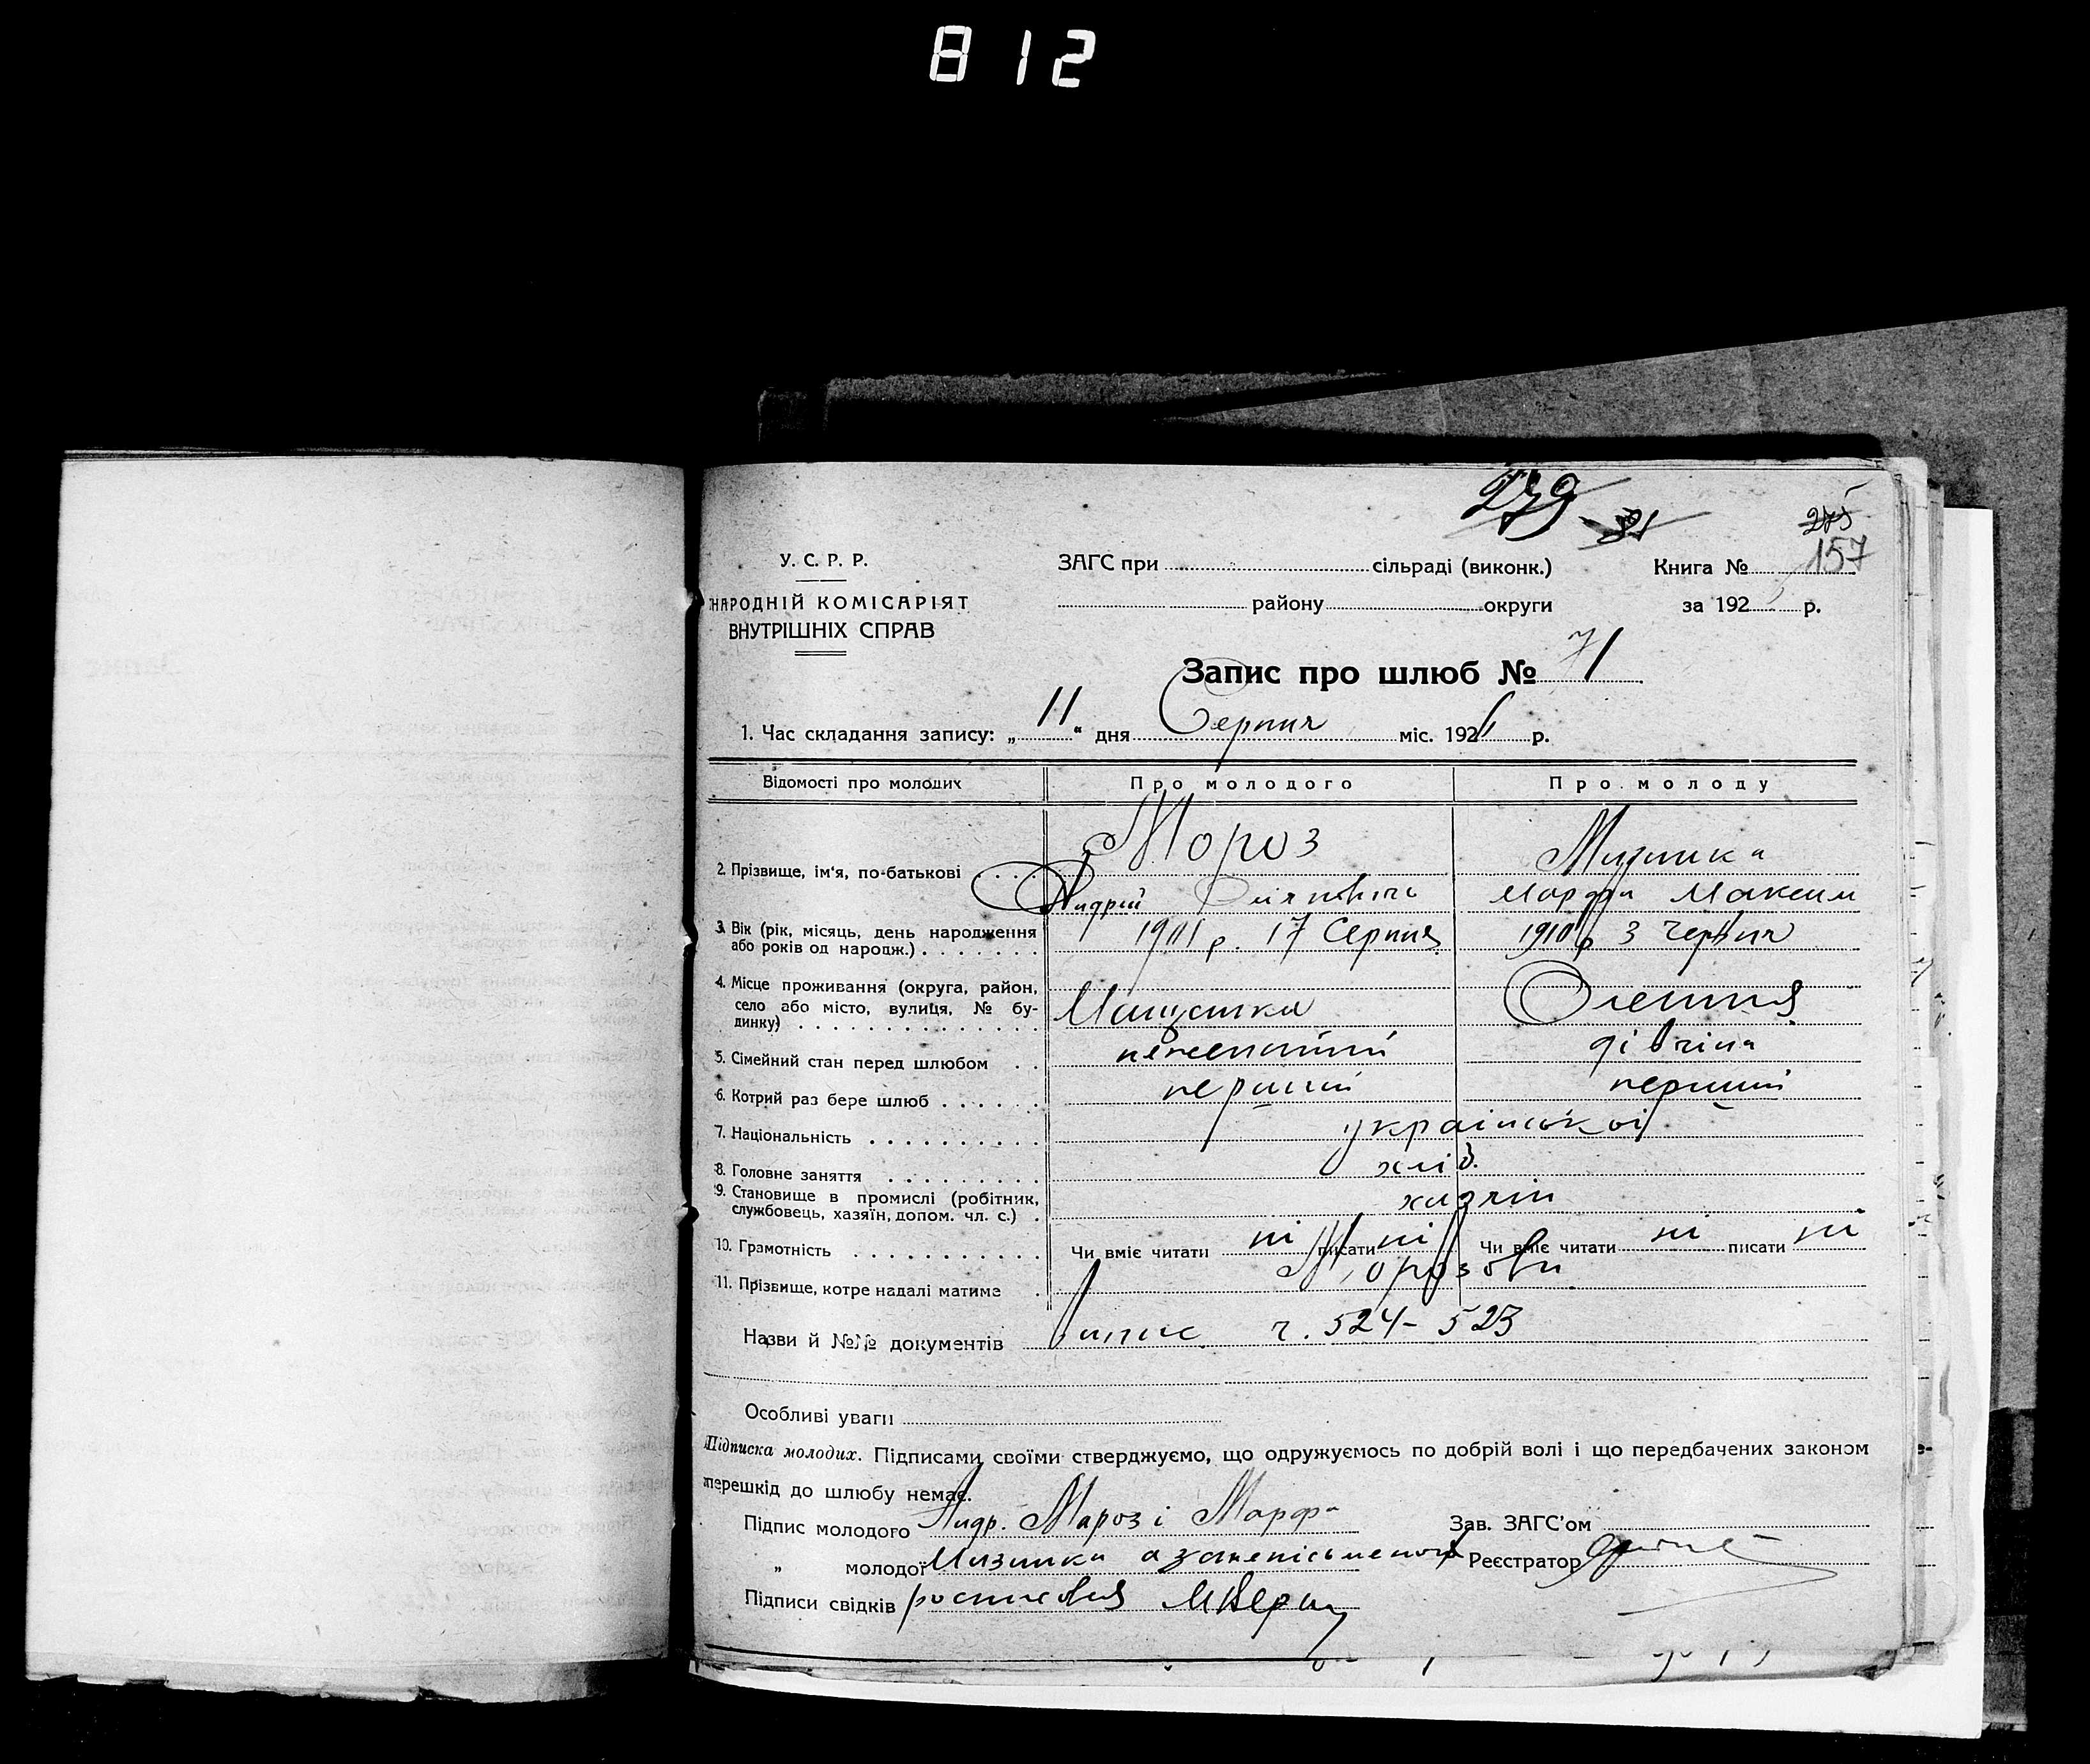 812
279 31
275
У. С. Р. Р. ЗАГС при сільраді (виконк.) Книга № 157
НАРОДНІЙ КОМІСАРІЯТ району округи за 192 р.
ВНУТРІШНІХ СПРАВ
Запис про шлюб № 71
1. Час складання запису: „ 11 “ дня Серпня міс. 192 р.
Відомості про молодих Про молодого Про молоду
Мороз
2. Прізвище, ім‘я, по-батькові Андрій Марфа Максим
3. Вік (рік, місяць, день народження 17 Серпня 1910 р 3 Червня
або років од народж.)
4. Місце проживання (округа, район,
село або місто, вулиця, № бу-
динку)
5. Сімейний стан перед шлюбом нежонатий дівчина
6. Котрий раз бере шлюб перший перший
7. Національність української
8. Головне заняття хліб.
9. Становище в промислі (робітник,
службовець, хазяїн, допом. чл. с.) хазяїн
10. Грамотність Чи вміє читати ні писати ні Чи вміє читати ні писати ні
11. Прізвище, котре надалі матиме Морозови
Назви й №№ документів Випис ч. 524-523
Особливі уваги
Підписка молодих. Підписами своїми стверджуємо, що одружуємось по добрій волі і що передбачених законом
перешкід до шлюбу немає.
Підпис молодого Андр. Мороз і Марфа Зав. ЗАГС'ом
„ молодої а за Реєстратор
Підписи свідків